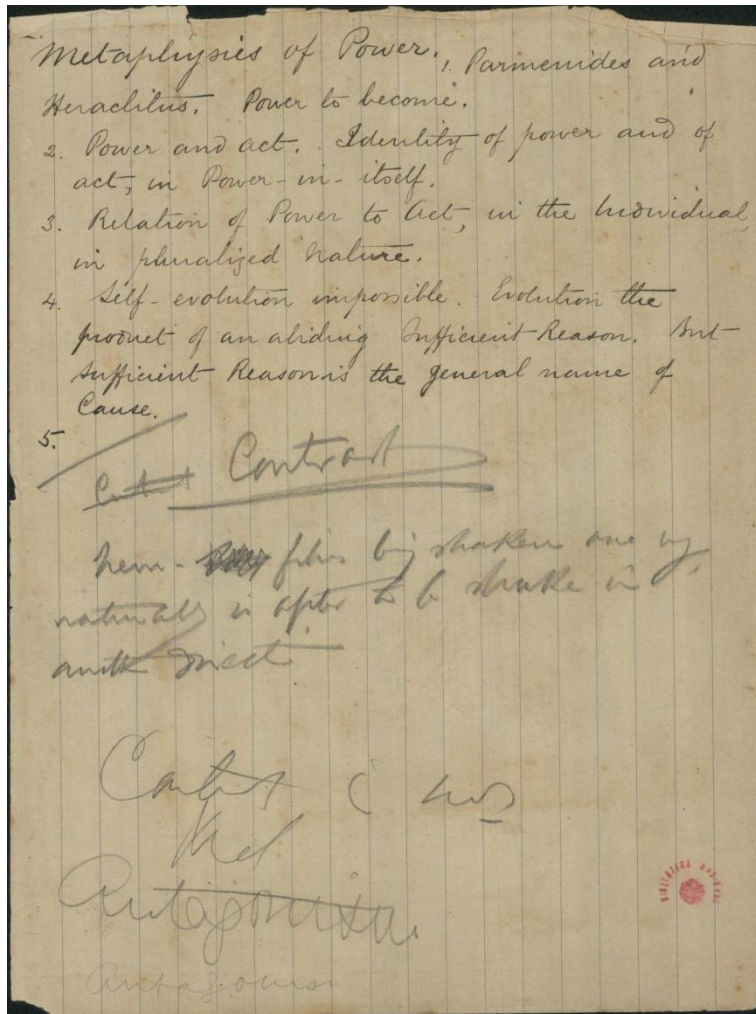 Metaphysics of Power. 1. Parmenides and
Heraclitus. Power to become.
2. Power and act. Identity of power and of
act, in Power-in-itself.
3. Relation of Power to Act, in the Individual,
in pluralized nature.
4. Self-evolution impossible. Evolution the
product of an abiding Sufficient Reason. But
Sufficient Reason is the general name of
Cause.
5.
Contrast
shaken one way,
naturally is after to be shake in
Antagonism
Antagonism